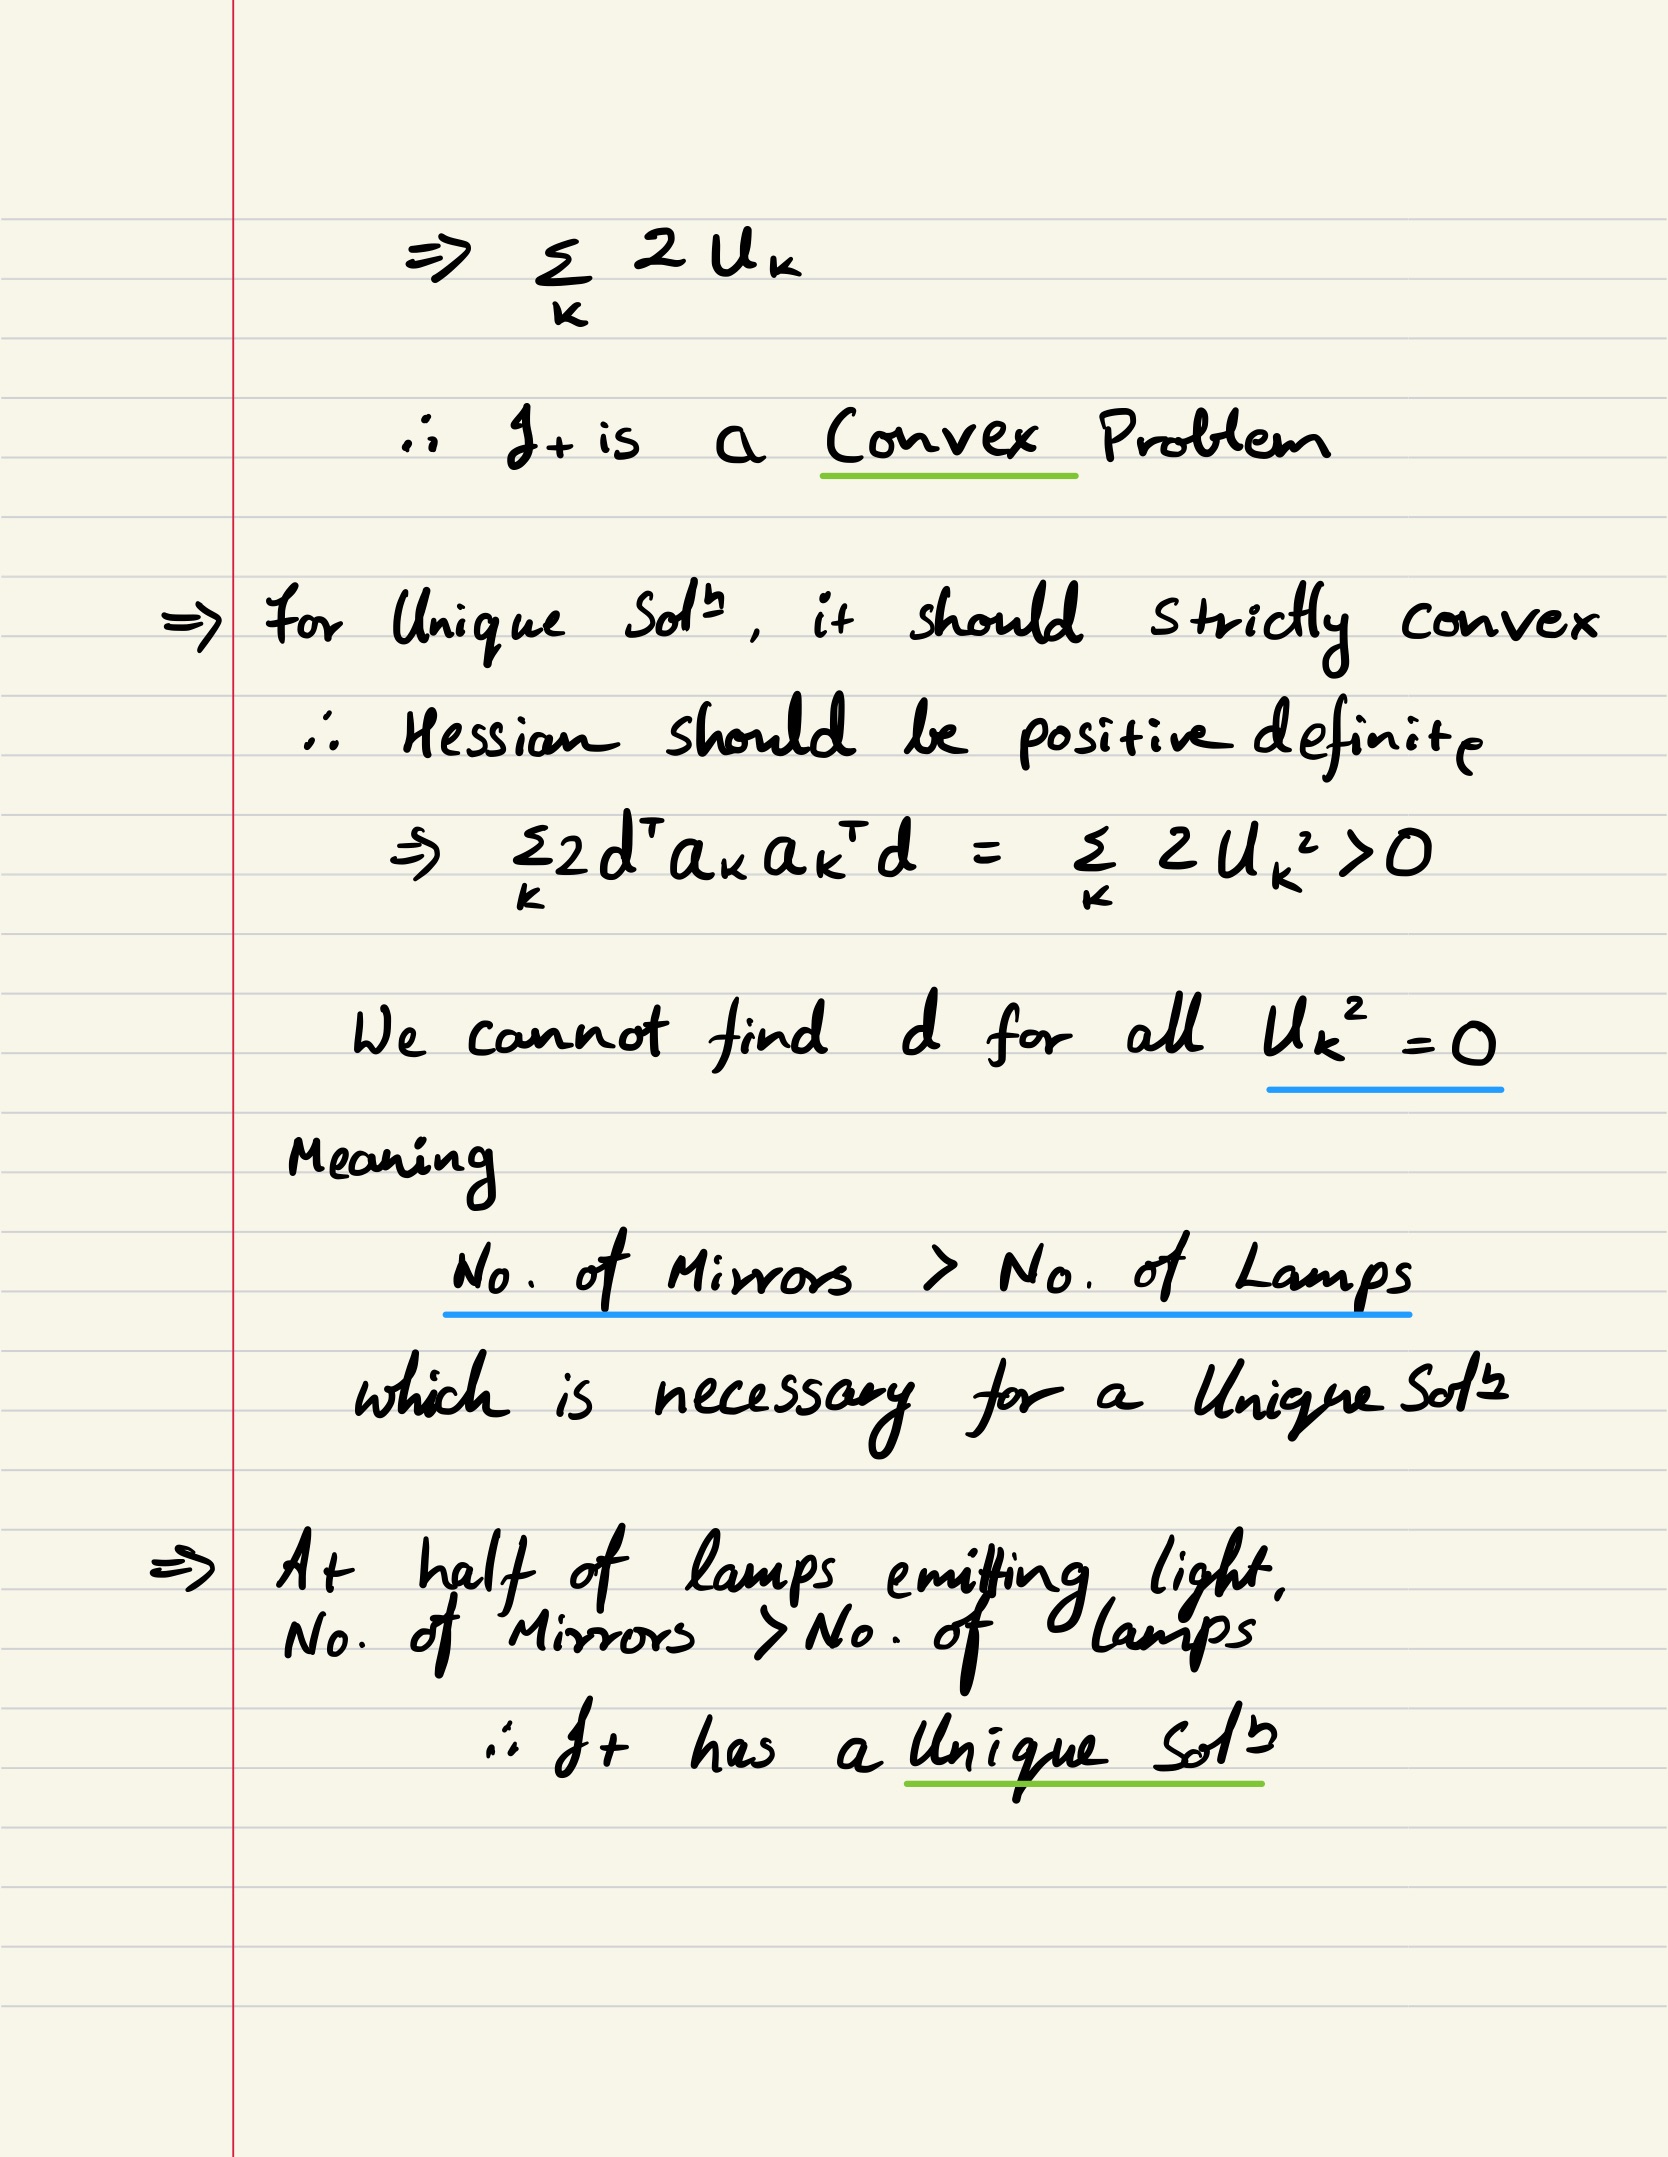 ⇒ Σ_K 2 U_K
∴ It is a Convex Problem
⇒ For Unique Solⁿ, it should strictly convex
∴ Hessian should be positive definite
⇒ Σ_K 2 dᵀ a_K a_Kᵀ d = Σ_K 2 U_K² > 0
We cannot find d for all U_K² = 0
Meaning
No. of Mirrors > No. of Lamps
which is necessary for a Unique Solⁿ
⇒ At half of lamps emitting light,
No. of Mirrors > No. of lamps
∴ It has a Unique Solⁿ